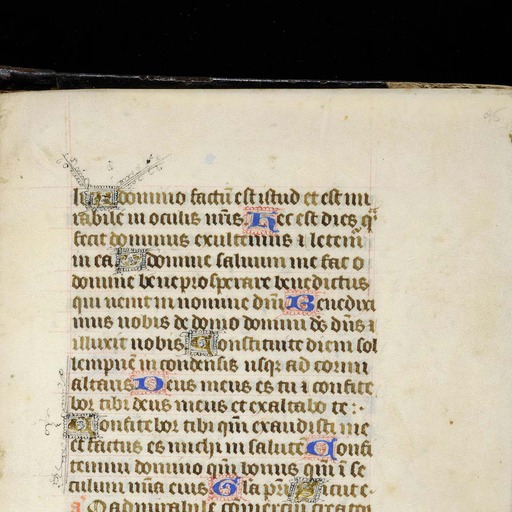 lis A domino factū est istud et est mi
rabile in oculis nr̄is. Hec est dies q̄
fecit dominus exultemus ⁊ letem̄
in ea O domine saluum me fac o
domine bene prosperare benedictus
qui uenit in nomine dn̄i Benedixi
mus nobis de domo domini ds̄ dn̄s ⁊
illuxit nobis Constituite diem sol
lempnē in condensis usq; ad cornu
altaris Deus meus es tu ⁊ confite
bor tibi deus meus et exaltabo te :·
Confitebor tibi qm̄ exaudisti me
et factus es michi in salutē Confi
temini domino qm̄ bonus qm̄ ī se
culum mīa eius Gla pr̄i Sicut e·
a O admirabile comerciū creator